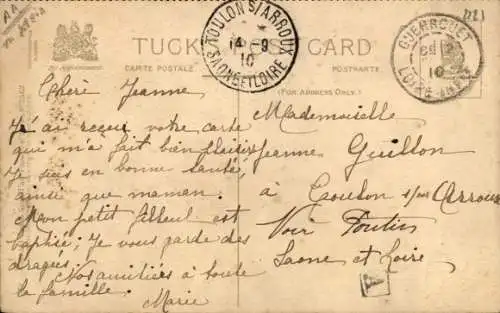 TUCK'S POST CARD
CARTE POSTALE
POSTKARTE
(FOR ADDRESS ONLY.)
TOULON S/ARROUX
14 - 9
10
SAONE ET LOIRE
GUENROUET
10
LOIRE-INF
Cheré Jeanne
J'ai reçu votre carte
qui m'a fait bien plaisir
Je suis en bonne santé,
ainsi que maman.
Mon petit filleul est
baptisé; Je vous garde des
dragées.
Nos amitiées à toute
la famille.
Marie
Mademoiselle
Jeanne Guillon
à Toulon s/sur Arroux
Saone et Loire
A